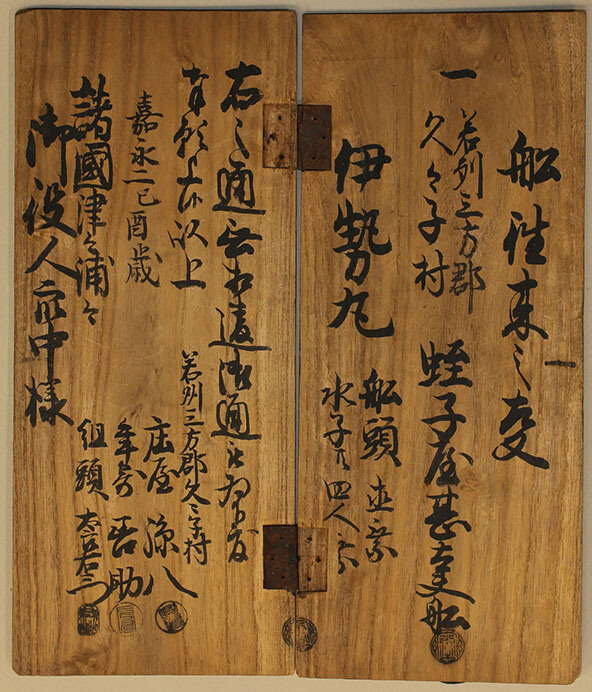 舩往来之事
一 若州三方郡
久々子村
蛭子屋甚太夫舩
伊勢丸
舩頭 直乗
水子共四人乗
右之通無相違御通
奉願上候以上
嘉永二己酉歳
若州三方郡久々子村
庄屋 孫八
年寄 吾助
組頭
諸國津々浦々
御役人衆中様